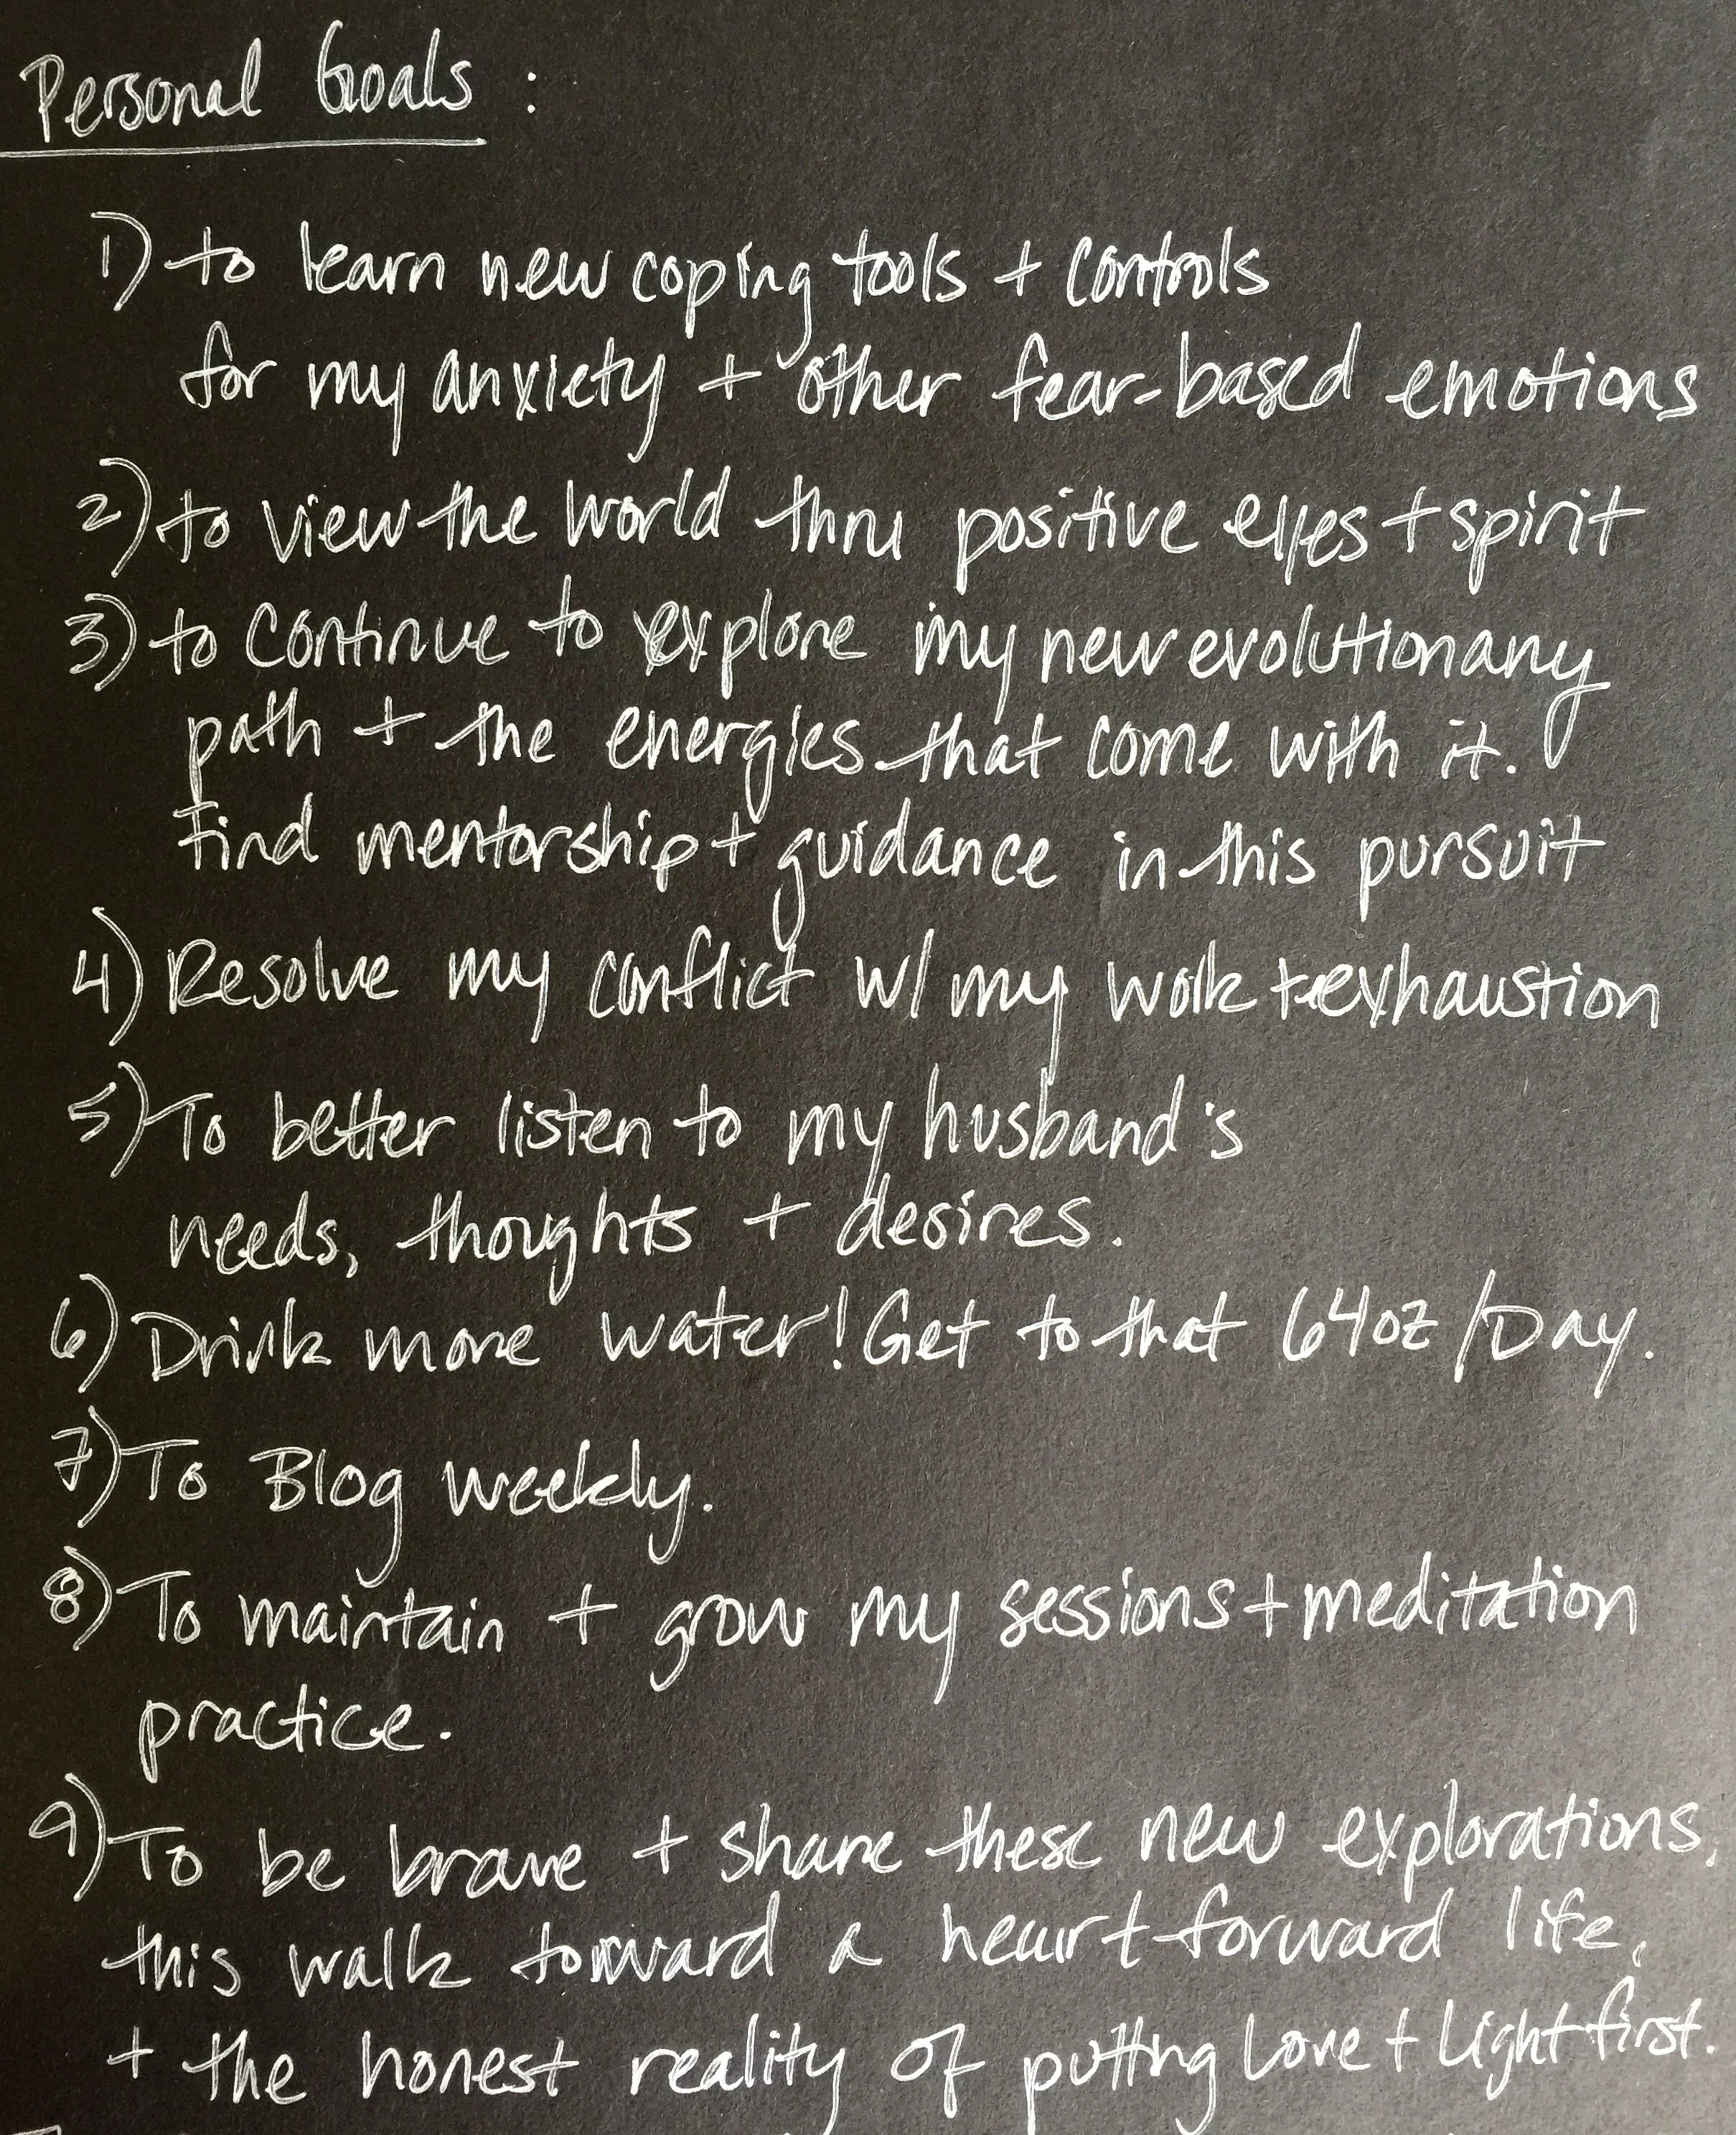 Personal Goals :
1) to learn new coping tools + controls
for my anxiety + other fear-based emotions
2) to view the world thru positive eyes + spirit
3) to continue to explore my new evolutionary
path + the energies that come with it.
Find mentorship + guidance in this pursuit
4) Resolve my conflict w/ my work + exhaustion
5) To better listen to my husband's
needs, thoughts + desires.
6) Drink more water! Get to that 64oz/Day.
7) To Blog weekly.
8) To maintain + grow my sessions + meditation
practice.
9) To be brave + share these new explorations,
this walk toward a heart-forward life,
+ the honest reality of putting Love + Light first.